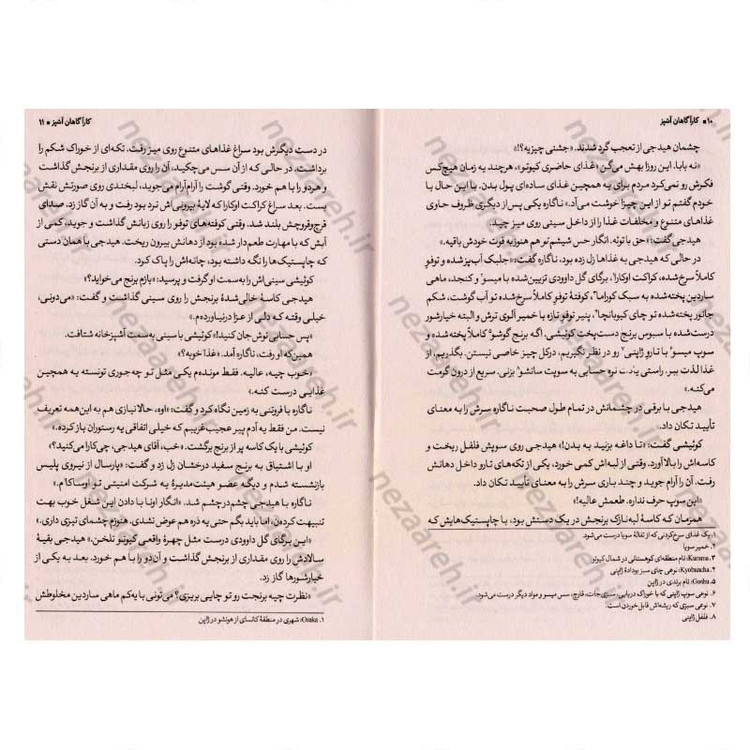 ۱۰ ■ کارآگاهان آشپز
چشمان هیدجی از تعجب گرد شدند. «جشنی چیزیه؟!»
«نه بابا. این روزا بهش می‌گن «غذای حاضری کیوتو»، هرچند یه زمان هیچ‌کس
فکرش رو نمی‌کرد مردم برای یه همچین غذای ساده‌ای پول بدن. با این حال با
خودم گفتم تو از این چیزا خوشت می‌آد.» ناگاره یکی پس از دیگری ظروف حاوی
غذاهای متنوع و مخلفات غذا را از داخل سینی روی میز چید.
هیدجی گفت: «حق با توئه. انگار حس شیشم تو هم هنوز به قوت خودش باقیه.»
در حالی که هیدجی به غذاها زل زده بود، ناگاره گفت: «جلبک آب‌پز شده و توفو
کاملاً سرخ‌شده، کراکت اوکارا، برگای گل داوودی تزیین‌شده با میسو و کنجد، ماهی
ساردین پخته‌شده به سبک کوراما، کوفتهٔ توفو کاملاً سرخ‌شده تو آب گوشت، شکم
جانور پخته‌شده تو چای کیوبانچا، پنیر توفو تازه با خمیر آلوی ترش و البته خیارشور
درست‌شده با سبوس برنج دست‌پخت کوئیشی. اگه برنج گوشو کاملاً پخته شده و
سوپ میسو با تارو ژاپنی رو در نظر نگیریم، درکل چیز خاصی نیستن. بگذریم، از
غذا لذت ببر. راستی یادت نره حسابی به سوپت سانشو بزنی. سریع از درون گرمت
می‌کنه.»
هیدجی با برقی در چشمانش در تمام طول صحبت ناگاره سرش را به معنای
تأیید تکان داد.
کوئیشی گفت: «تا داغه بزنید به بدن!» هیدجی روی سوپش فلفل ریخت و
کاسه‌اش را بالا آورد. وقتی از لبه‌اش کمی خورد، یکی از تکه‌های تارو داخل دهانش
رفت. آن را آرام جوید و چند باری سرش را به معنای تأیید تکان داد.
«این سوپ حرف نداره. طعمش عالیه!»
همزمان که کاسهٔ لبه‌نازک برنجش در یک دستش بود، با چاپستیک‌هایش که
۱. یک غذای سرخ‌کردنی که از تفالهٔ سویا درست می‌شود.
۲. خمیر سویا
۳. Kurama: نام منطقه‌ای کوهستانی در شمال کیوتو
۴. Kyobancha: نوعی چای سبز بوداده‌ٔ ژاپنی
۵. Goshu: نام برندی در ژاپن
۶. نوعی سوپ ژاپنی که با خوراک دریایی، سبزی‌جات، قارچ، سس میسو و مواد دیگر درست می‌شود.
۷. نوعی سبزی که ریشه‌اش قابل خوردن است.
۸. فلفل ژاپنی
کارآگاهان آشپز ■ ۱۱
در دست دیگرش بود سراغ غذاهای متنوع روی میز رفت. تکه‌ای از خوراک شکم را
برداشت، در حالی که از آن سس می‌چکید، آن را روی مقداری از برنجش گذاشت
و هر دو را با هم خورد. وقتی گوشت را آرام‌آرام می‌جوید، لبخندی روی صورتش نقش
بست. بعد سراغ کراکت اوکارا که لایهٔ بیرونی‌اش ترد بود رفت و به آن گاز زد. صدای
قرچ‌وقروچش بلند شد. وقتی کوفته‌های توفو را روی زبانش گذاشت و جوید، کمی از
آبش که با مهارت طعم‌دار شده بود از دهانش بیرون ریخت. هیدجی با همان دستی
که چاپستیک‌ها را نگه داشته بود، چانه‌اش را پاک کرد.
کوئیشی سینی‌اش را به سمت او گرفت و پرسید: «بازم برنج می‌خواید؟»
هیدجی کاسهٔ خالی‌شدهٔ برنجش را روی سینی گذاشت و گفت: «می‌دونی،
خیلی وقته که دلی از عزا درنیاورده‌م.»
«پس حسابی نوش جان کنید!» کوئیشی با سینی به سمت آشپزخانه شتافت.
همین‌که او رفت، ناگاره آمد. «غذا خوبه؟»
«خوب چیه، عالیه. فقط مونده‌م یکی مثل تو چه‌جوری تونسته یه همچین
غذایی درست کنه.»
ناگاره با فروتنی به زمین نگاه کرد و گفت: «اوه، حالا نیازی هم به این‌همه تعریف
نیست. من فقط یه آدم پیر عجیب‌غریبم که خیلی اتفاقی یه رستوران باز کرده.»
کوئیشی با یک کاسه پر از برنج برگشت. «خب، آقای هیدجی، چی‌کارا می‌کنید؟»
او با اشتیاق به برنج سفید درخشان زل زد و گفت: «پارسال از نیروی پلیس
بازنشسته شدم و دیگه عضو هیئت‌مدیرهٔ یه شرکت امنیتی تو اوساکام.»
ناگاره با هیدجی چشم‌درچشم شد. «انگار اونا با دادن این شغل خوب بهت
تنبیهت کردن، اما باید بگم حتی یه ذره هم عوض نشدی. هنوزم چشمای تیزی داری.»
«این برگای گل داوودی درست مثل چهرهٔ واقعی کیوتو تلخن.» هیدجی بقیهٔ
سالادش را روی مقداری از برنجش گذاشت و آن دو را با هم خورد. بعد به یکی از
خیارشورها گاز زد.
«نظرت چیه برنجت رو تو چایی بریزی؟ می‌تونی با یه‌کم ماهی ساردین مخلوطش
۱. Osaka: شهری در منطقهٔ کانسای از هونشو در ژاپن
nezaareh.ir